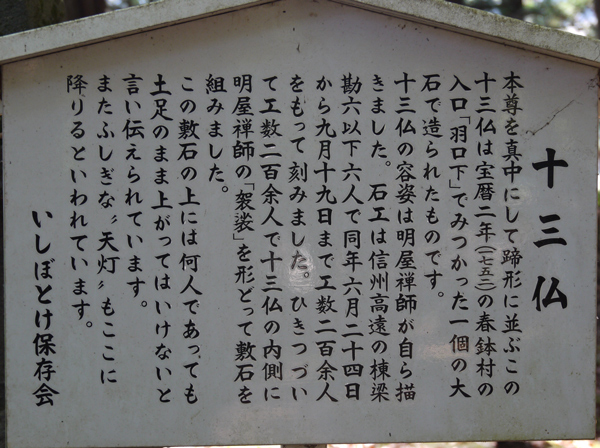 十三仏
本尊を真中にして蹄形に並ぶこの
十三仏は宝暦二年(一七五二)の春鉢村の
入口「羽口下」でみつかった一個の大
石で造られたものです。
十三仏の容姿は明屋禅師が自ら描
きました。石工は信州高遠の棟梁
勘六以下六人で同年六月二十四日
から九月十九日まで工数二百余人
をもって刻みました。ひきつづい
て工数二百余人で十三仏の内側に
明屋禅師の「袈裟」を形どって敷石を
組みました。
この敷石の上には何人であっても
土足のまま上がってはいけないと
言い伝えられています。
またふしぎな〝天灯〟もここに
降りるといわれています。
いしぼとけ保存会